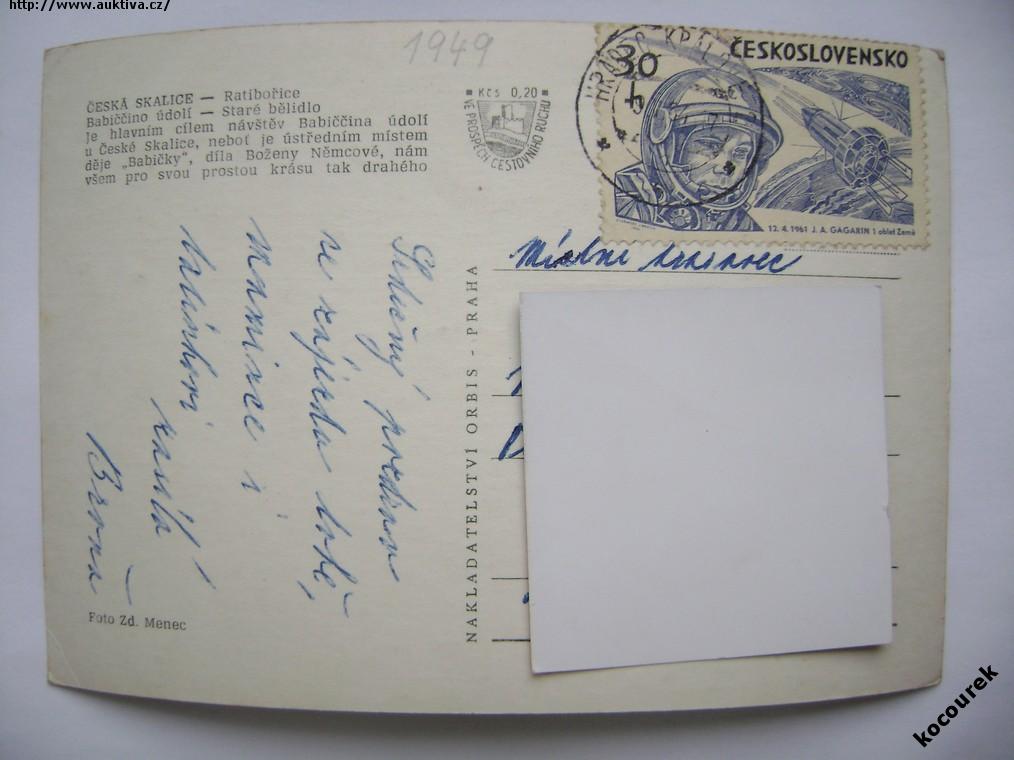 http://www.auktiva.cz/
1949
ČESKÁ SKALICE — Ratibořice
Babiččino údolí — Staré bělidlo
je hlavním cílem návštěv Babiččina údolí
u České Skalice, neboť je ústředním místem
děje „Babičky", díla Boženy Němcové, nám
všem pro svou prostou krásu tak drahého
Kčs 0,20
VE PROSPĚCH CESTOVNÍHO RUCHU
30 h
ČESKOSLOVENSKO
12. 4. 1961 J. A. GAGARIN 1 oblet Země
HRADEC KRÁL
NAKLADATELSTVÍ ORBIS - PRAHA
Srdečný pozdrav
ze zájezdu
Mamince i
zasílá
Foto Zd. Menec
kocourek